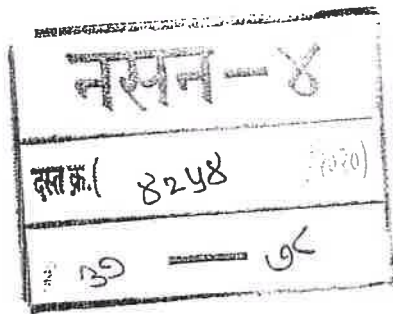 नसन - ४
दस्त क्र.( ४२५४ /२०२०)
३० — ७८